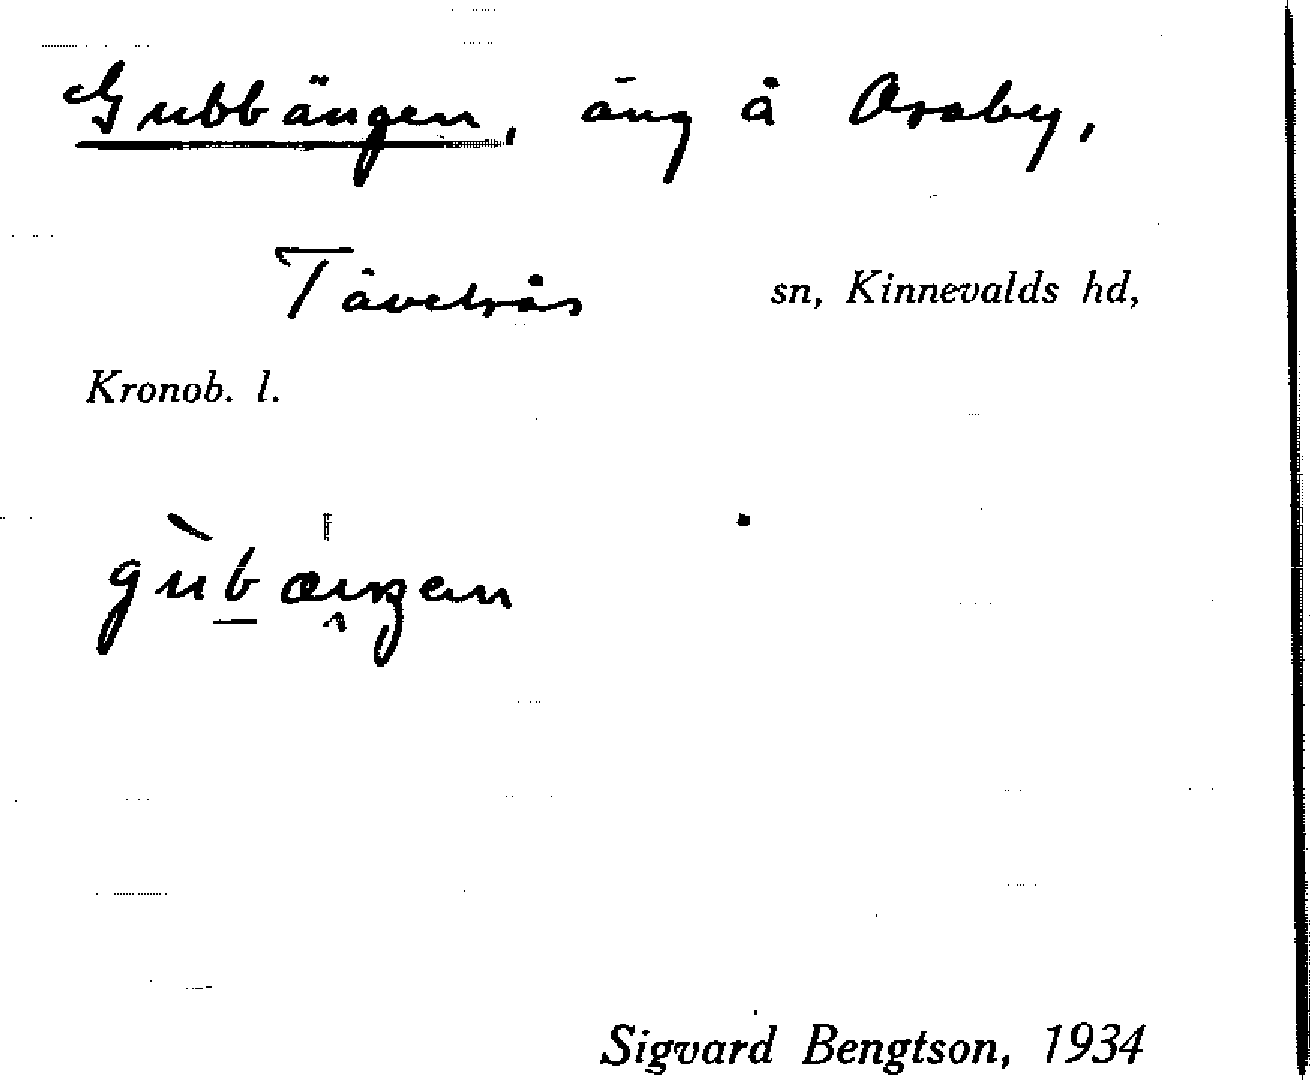 Gubbängen, äng å Araby,
Tävelsås sn, Kinnevalds hd,
Kronob. l.
Sigvard Bengtson, 1934